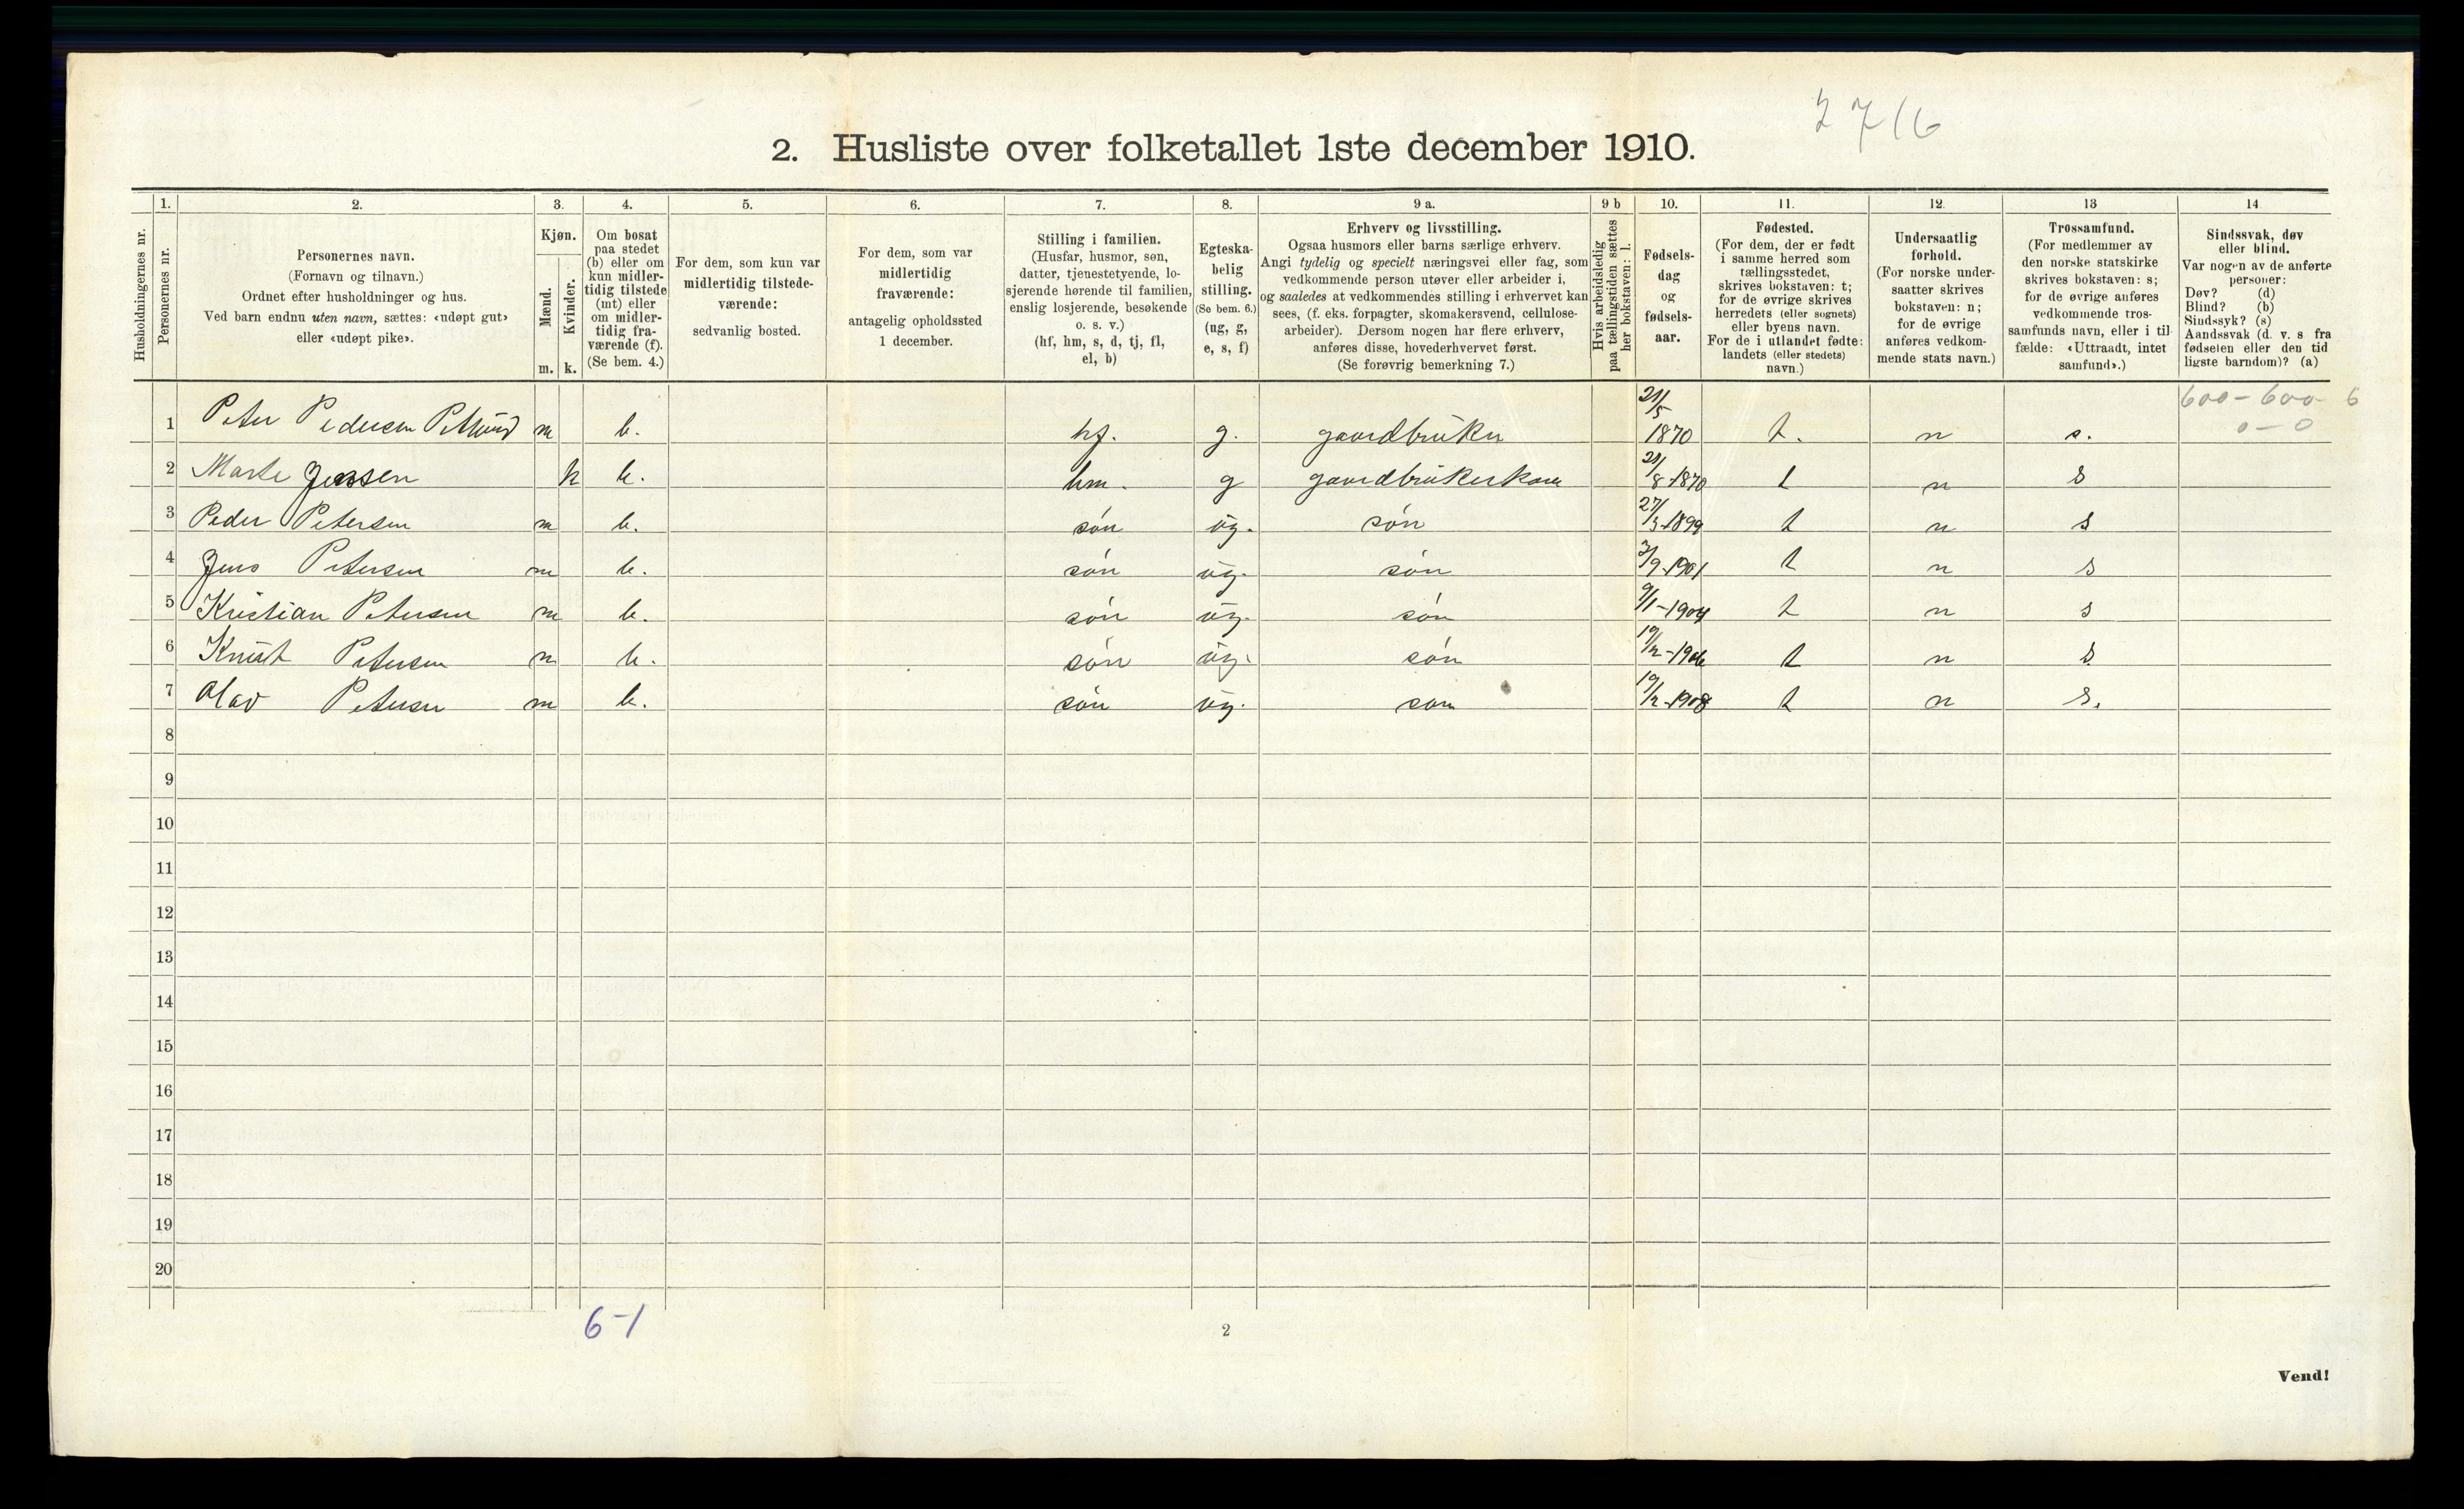 2716
2. Husliste over folketallet 1ste december 1910.
Husholdningernes nr.
1.
Personernes nr.
2.
Personernes navn.
(Fornavn og tilnavn.)
Ordnet efter husholdninger og hus.
Ved barn endnu uten navn, sættes: «udøpt gut»
eller «udøpt pike».
3.
Kjøn.
Mænd.
Kvinder.
m. k.
4.
Om bosat
paa stedet
(b) eller om
kun midler-
tidig tilstede
(mt) eller
om midler-
tidig fra-
værende (f).
(Se bem. 4.)
5.
For dem, som kun var
midlertidig tilstede-
værende:
sedvanlig bosted.
6.
For dem, som var
midlertidig
fraværende:
antagelig opholdssted
1 december.
7.
Stilling i familien.
(Husfar, husmor, søn,
datter, tjenestetyende, lo-
sjerende hørende til familien,
enslig losjerende, besøkende
o. s. v.)
(hf, hm, s, d, tj, fl,
el, b)
8.
Egteska-
belig
stilling.
(Se bem. 6.)
(ug, g,
e, s, f)
9 a.
Erhverv og livsstilling.
Ogsaa husmors eller barns særlige erhverv.
Angi tydelig og specielt næringsvei eller fag, som
vedkommende person utøver eller arbeider i,
og saaledes at vedkommendes stilling i erhvervet kan
sees, (f. eks. forpagter, skomakersvend, cellulose-
arbeider). Dersom nogen har flere erhverv,
anføres disse, hovederhvervet først.
(Se forøvrig bemerkning 7.)
9 b
Hvis arbeidsledig
paa tællingstiden sættes
her bokstaven: l.
10.
Fødsels-
dag
og
fødsels-
aar.
11.
Fødested.
(For dem, der er født
i samme herred som
tællingsstedet,
skrives bokstaven: t;
for de øvrige skrives
herredets (eller sognets)
eller byens navn.
For de i utlandet fødte:
landets (eller stedets)
navn.)
12.
Undersaatlig
forhold.
(For norske under-
saatter skrives
bokstaven: n;
for de øvrige
anføres vedkom-
mende stats navn.)
13
Trossamfund.
(For medlemmer av
den norske statskirke
skrives bokstaven: s;
for de øvrige anføres
vedkommende tros-
samfunds navn, eller i til-
fælde: «Uttraadt, intet
samfund».)
14
Sindssvak, døv
eller blind.
Var nogen av de anførte
personer:
Døv? (d)
Blind? (b)
Sindssyk? (s)
Aandssvak (d. v. s fra
fødselen eller den tid
ligste barndom)? (a)
600 - 600 - 6
0 - 0
1 Peter Pedersen m b. hf. g. gaardbruker 21/5 1870 t. n s.
2 Marte Jenssen k b. hm. g gaardbrukerkone 21/8-1870 t n s
3 Peder Petersen m b. søn ug. søn 27/3-1899 t n s
4 Jens Petersen m b. søn ug. søn 3/9-1901 t n s
5 Kristian Petersen m b. søn ug. søn 9/1-1904 t n s
6 Knut Petersen m b. søn ug. søn 19/2-1906 t n s
7 Olav Petersen m b. søn ug. søn 19/2-1908 t n s.
8
9
10
11
12
13
14
15
16
17
18
19
20
6-1
2
Vend!